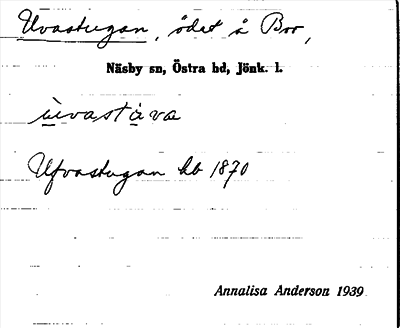 Uvastugan, ödet å Bro,
Näsby sn, Östra hd, Jönk. l.
ùvastàva
Ufvastugan hb 1870
Annalisa Anderson 1939